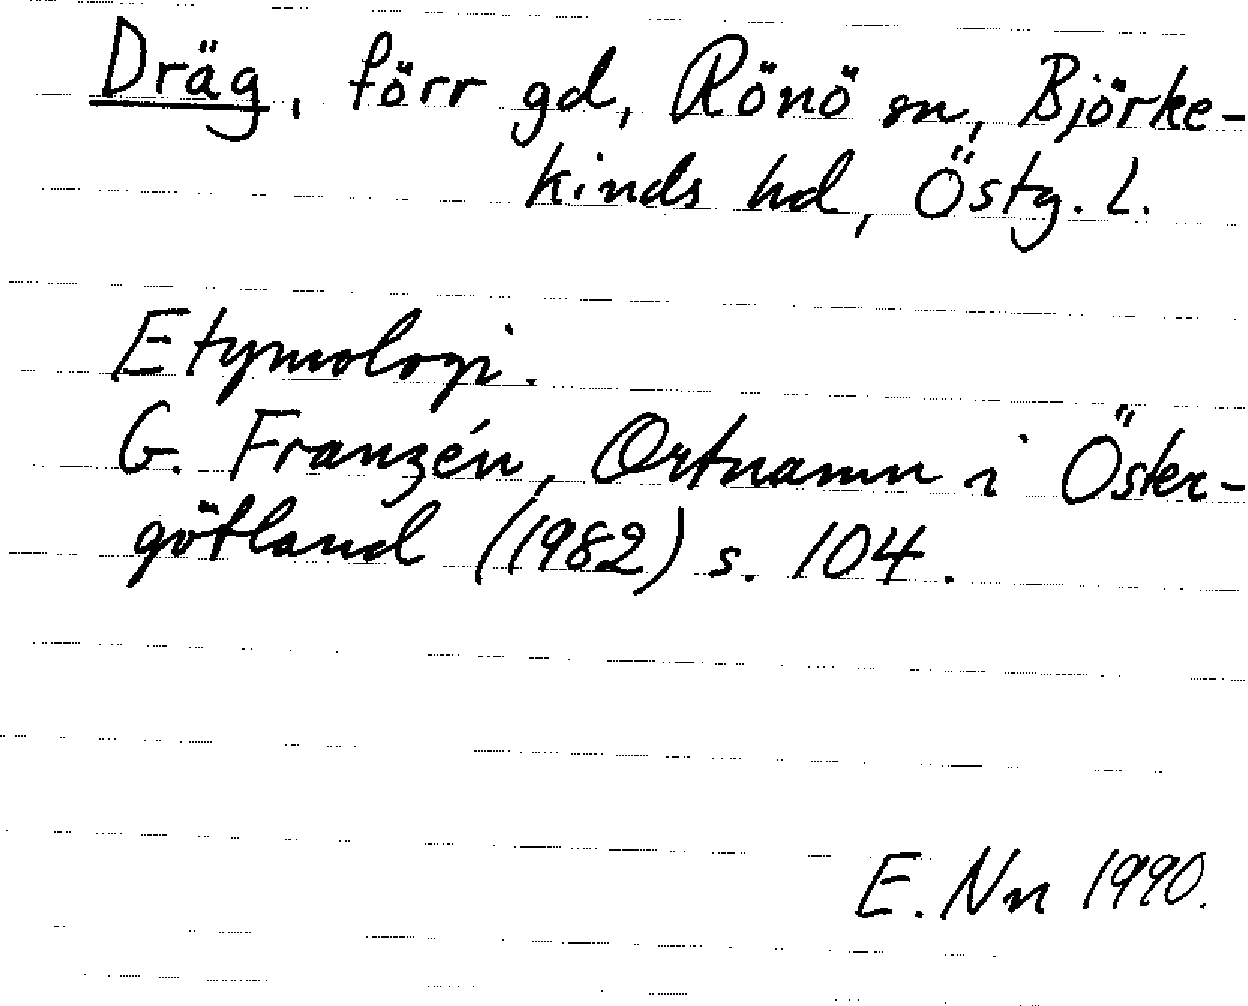 Dräg, förr gd, Rönö sn, Björke-
kinds hd, Östg. l.
Etymologi.
G. Franzén, Ortnamn i Öster-
götland (1982) s. 104.
E. Nn 1990.